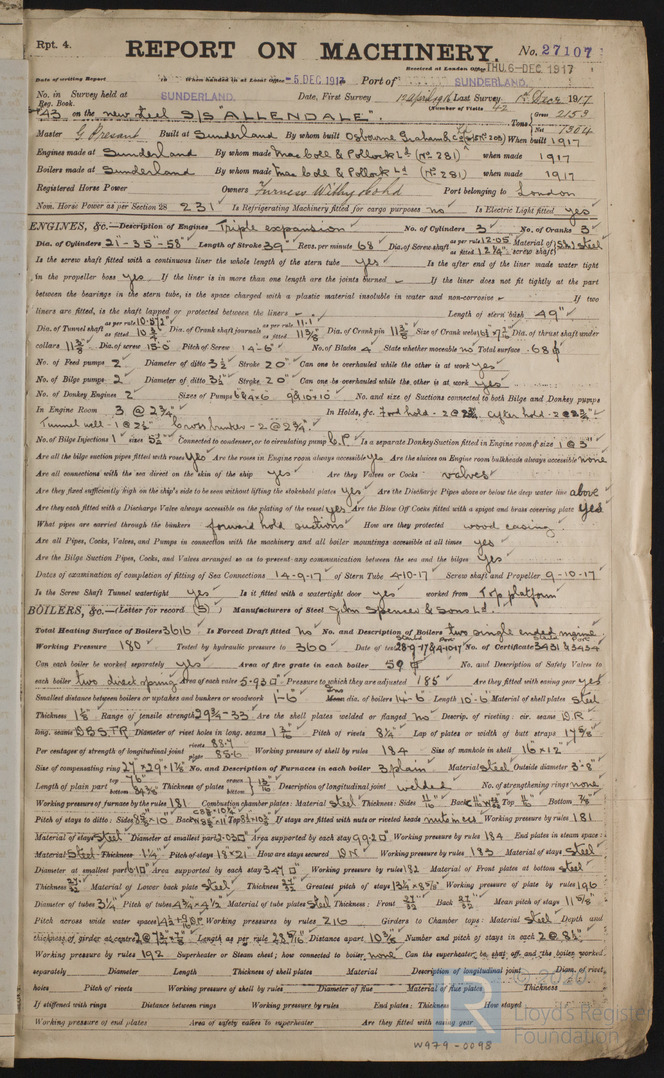 Rpt. 4.
REPORT ON MACHINERY.
No. 27107
Received at London Office THU. 6-DEC 1917
Date of writing Report 19 When handed in at Local Office -5 DEC. 1917 Port of SUNDERLAND.
No. in Survey held at SUNDERLAND. Date, First Survey 12 April 1916 Last Survey Decr 1917
Reg. Book. (Number of Visits 42
43 on the new steel S/S "ALLENDALE". Tons Gross 2153 Net
Master G Presant Built at Sunderland By whom built Osbourne Graham & Co Ld (No 208) When built 1917
Engines made at Sunderland By whom made MacColl & Pollock Ld (No 281) when made 1917
Boilers made at Sunderland By whom made MacColl & Pollock Ld (No 281) when made 1917
Registered Horse Power Owners Furness Withy & Co Ld Port belonging to London
Nom. Horse Power as per Section 28 231 Is Refrigerating Machinery fitted for cargo purposes no Is Electric Light fitted yes
ENGINES, &c.—Description of Engines Triple expansion No. of Cylinders 3 No. of Cranks 3
Dia. of Cylinders 21-35-58" Length of Stroke 39" Revs. per minute 68 Dia. of Screw shaft as per rule 12.05 as fitted 12 1/4" Material of screw shaft steel
Is the screw shaft fitted with a continuous liner the whole length of the stern tube yes Is the after end of the liner made water tight
in the propeller boss yes If the liner is in more than one length are the joints burned - If the liner does not fit tightly at the part
between the bearings in the stern tube, is the space charged with a plastic material insoluble in water and non-corrosive - If two
liners are fitted, is the shaft lapped or protected between the liners - Length of stern bush 49"
Dia. of Tunnel shaft as per rule 10.572 as fitted 10 3/4 Dia. of Crank shaft journals as per rule 11.1 as fitted 11 3/8 Dia. of Crank pin 11 3/8 Size of Crank webs Dia. of thrust shaft under
collars 11 3/8 Dia. of screw 15-0 Pitch of Screw 14-6" No. of Blades 4 State whether moveable no Total surface 68
No. of Feed pumps 2 Diameter of ditto 3 1/2 Stroke 20" Can one be overhauled while the other is at work yes
No. of Bilge pumps 2 Diameter of ditto 3 1/2 Stroke 20" Can one be overhauled while the other is at work yes
No. of Donkey Engines 2 Sizes of Pumps No. and size of Suctions connected to both Bilge and Donkey pumps
In Engine Room 3 @ 2 3/4" In Holds, &c. Ford hold - 2 @ 2 3/4 after hold - 2 @ 2 3/4"
Tunnel well - 1 @ 2 1/2" Cross bunker - 2 @ 2 3/4".
No. of Bilge Injections 1 sizes 5 1/2" Connected to condenser, or to circulating pump C.P. Is a separate Donkey Suction fitted in Engine room & size 1 @ 3"
Are all the bilge suction pipes fitted with roses yes Are the roses in Engine room always accessible yes Are the sluices on Engine room bulkheads always accessible none
Are all connections with the sea direct on the skin of the ship yes Are they Valves or Cocks valves
Are they fixed sufficiently high on the ship's side to be seen without lifting the stokehold plates yes Are the Discharge Pipes above or below the deep water line above
Are they each fitted with a Discharge Valve always accessible on the plating of the vessel yes Are the Blow Off Cocks fitted with a spigot and brass covering plate yes
What pipes are carried through the bunkers forward hold suctions How are they protected wood casing
Are all Pipes, Cocks, Valves, and Pumps in connection with the machinery and all boiler mountings accessible at all times yes
Are the Bilge Suction Pipes, Cocks, and Valves arranged so as to prevent any communication between the sea and the bilges yes
Dates of examination of completion of fitting of Sea Connections 14-9-17 of Stern Tube 4-10-17 Screw shaft and Propeller 9-10-17
Is the Screw Shaft Tunnel watertight yes Is it fitted with a watertight door yes worked from Top platform
BOILERS, &c.—(Letter for record (S) ) Manufacturers of Steel John Spencer & Sons Ld.
Total Heating Surface of Boilers 3616 Is Forced Draft fitted no No. and Description of Boilers two single ended marine
Working Pressure 180 Tested by hydraulic pressure to 360 Date of test 28-9-17 & 4-10-17 No. of Certificate 3431 & 3434
Can each boiler be worked separately yes Area of fire grate in each boiler 59 No. and Description of Safety Valves to
each boiler two direct spring Area of each valve 5.93 Pressure to which they are adjusted 185 Are they fitted with easing gear yes
Smallest distance between boilers or uptakes and bunkers or woodwork 1-6" Mean dia. of boilers 14-6 Length 10-6" Material of shell plates steel
Thickness Range of tensile strength 29 3/4-33 Are the shell plates welded or flanged no Descrip. of riveting: cir. seams D.R.
long. seams D.B.S.T.R. Diameter of rivet holes in long. seams Pitch of rivets 8 1/4 Lap of plates or width of butt straps 17 5/8
Per centages of strength of longitudinal joint rivets 88.7 plate 85.6 Working pressure of shell by rules 184 Size of manhole in shell 16 x 12"
Size of compensating ring No. and Description of Furnaces in each boiler 3 plain Material steel Outside diameter 3-8"
Length of plain part top 76" bottom Thickness of plates crown bottom Description of longitudinal joint welded No. of strengthening rings none
Working pressure of furnace by the rules 181 Combustion chamber plates: Material steel Thickness: Sides 11/16 Back Top 11/16 Bottom 7/8
Pitch of stays to ditto: Sides Back Top If stays are fitted with nuts or riveted heads nuts Working pressure by rules 181
Material of stays steel Diameter at smallest part 2.03 Area supported by each stay 99.20 Working pressure by rules 184 End plates in steam space:
Material steel Thickness 1 1/4" Pitch of stays 18 x 21 How are stays secured D.N. Working pressure by rules 183 Material of stays steel
Diameter at smallest part 6.10 Area supported by each stay 347 Working pressure by rules 182 Material of Front plates at bottom steel
Thickness 27/32 Material of Lower back plate steel Thickness 27/32 Greatest pitch of stays Working pressure of plate by rules 196
Diameter of tubes 3 1/4 Pitch of tubes 4 3/4 x 4 1/2 Material of tube plates steel Thickness: Front 27/32 Back 27/32 Mean pitch of stays 11 5/8
Pitch across wide water spaces Working pressures by rules 216 Girders to Chamber tops: Material steel Depth and
thickness of girder at centre Length as per rule Distance apart Number and pitch of stays in each 2 @ 8 1/2"
Working pressure by rules 192 Superheater or Steam chest; how connected to boiler none Can the superheater be shut off and the boiler worked
separately Diameter Length Thickness of shell plates Material Description of longitudinal joint Diam. of rivet
holes Pitch of rivets Working pressure of shell by rules Diameter of flue Material of flue plates Thickness
If stiffened with rings Distance between rings Working pressure by rules End plates: Thickness How stayed
Working pressure of end plates Area of safety valves to superheater Are they fitted with easing gear
© 2020
LR
Lloyd's Register
Foundation
W979-0098